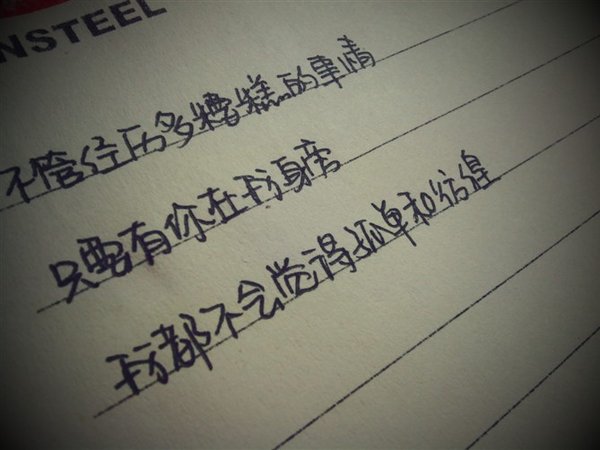 NSTEEL
不管经历多糟糕的事情
只要有你在我身旁
我都不会觉得孤单和彷徨